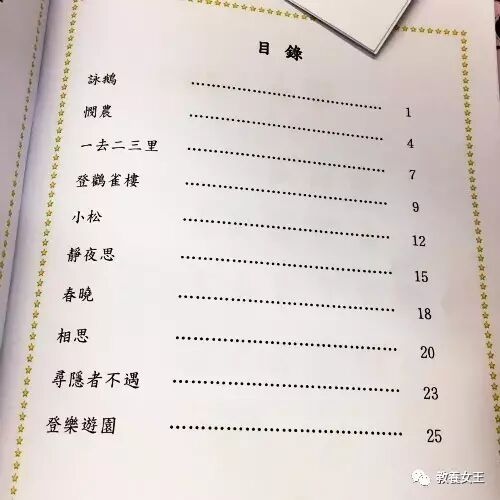 目錄
詠鵝 ………………………… 1
憫農 ………………………… 4
一去二三里 ………………………… 7
登鸛雀樓 ………………………… 9
小松 ………………………… 12
靜夜思 ………………………… 15
春曉 ………………………… 18
相思 ………………………… 20
尋隱者不遇 ………………………… 23
登樂遊園 ………………………… 25
教養女王